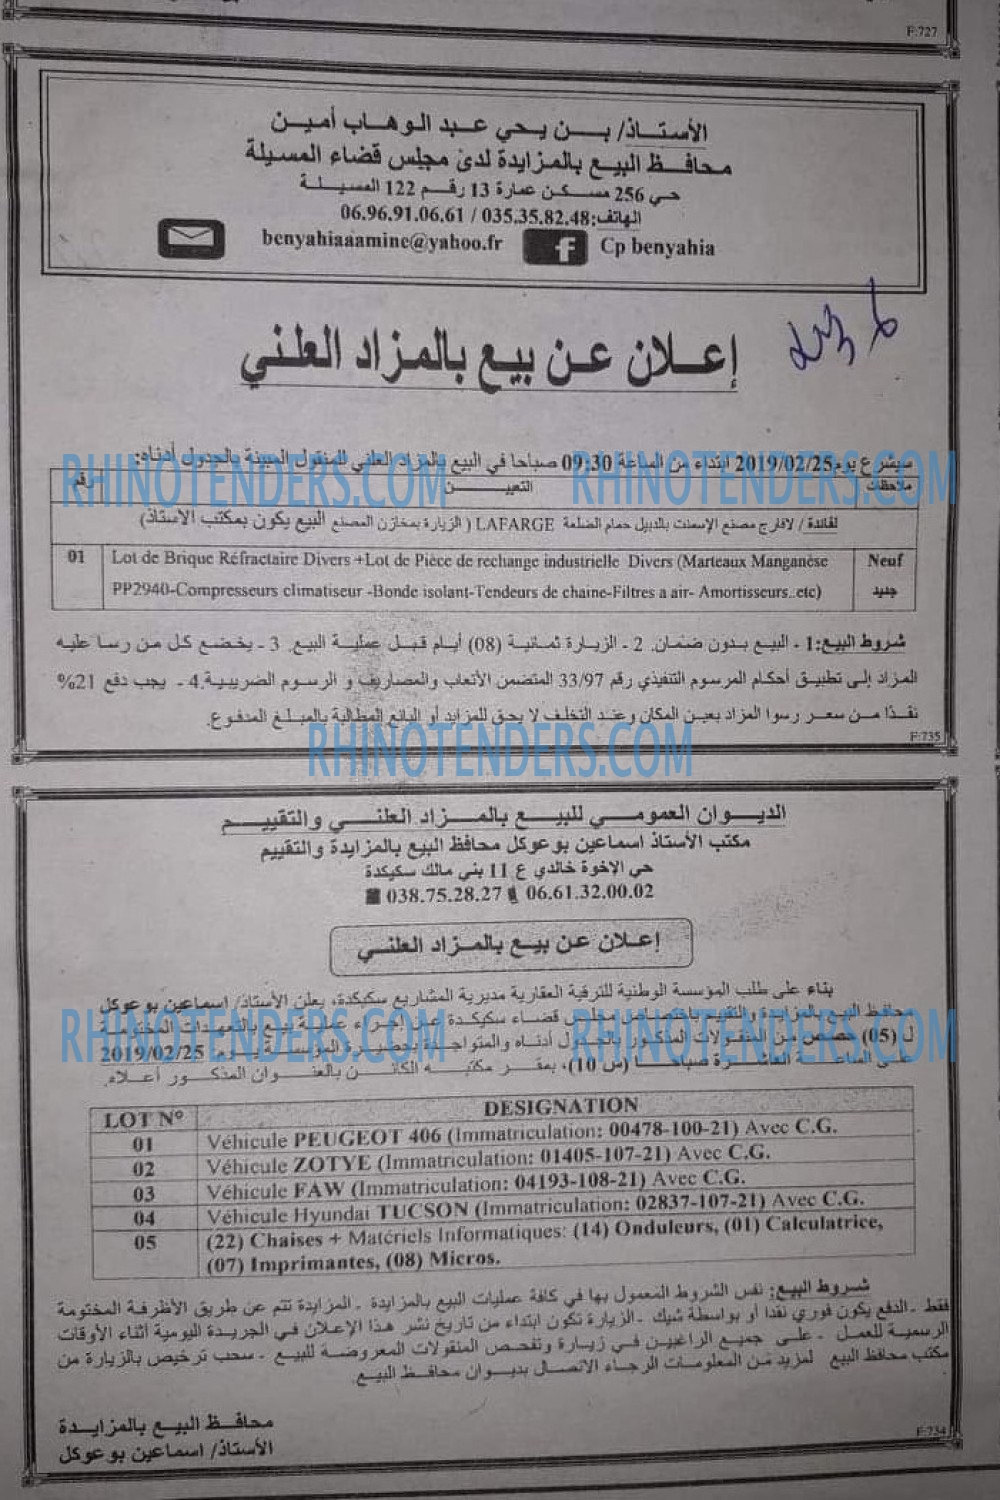 F:727
الأستاذ/ بن يحي عبد الوهاب أمين
محافظ البيع بالمزايدة لدى مجلس قضاء المسيلة
حي 256 مسكن عمارة 13 رقم 122 المسيلة
الهاتف:035.35.82.48 / 06.96.91.06.61
benyahiaaamine@yahoo.fr f Cp benyahia
إعلان عن بيع بالمزاد العلني
سيشرع يوم 2019/02/25 ابتداء من الساعة 09:30 صباحا في البيع بالمزاد العلني للمنقول المبينة بالجدول أدناه:
RHINOTENDERS.COM RHINOTENDERS.COM
رقم التعيين ملاحظات
لفائدة / لافارج مصنع الإسمنت بالدبيل حمام الضلعة LAFARGE ( الزيارة بمخازن المصنع البيع يكون بمكتب الأستاذ)
01 Lot de Brique Réfractaire Divers +Lot de Pièce de rechange industrielle Divers (Marteaux Manganèse Neuf
PP2940-Compresseurs climatiseur -Bonde isolant-Tendeurs de chaine-Filtres a air- Amortisseurs..etc) جديد
شروط البيع:1 - البيع بدون ضمان. 2 - الزيارة ثمانية (08) أيام قبل عملية البيع. 3 - يخضع كل من رسا عليه
المزاد إلى تطبيق أحكام المرسوم التنفيذي رقم 33/97 المتضمن الأتعاب والمصاريف و الرسوم الضريبية.4 - يجب دفع 21%
نقدا من سعر رسوا المزاد بعين المكان وعند التخلف لا يحق للمزايد أو البائع المطالبة بالمبلغ المدفوع.
F:735
RHINOTENDERS.COM
الديوان العمومي للبيع بالمزاد العلني والتقييم
مكتب الأستاذ اسماعين بوعوكل محافظ البيع بالمزايدة والتقييم
حي الإخوة خالدي ع 11 بني مالك سكيكدة
038.75.28.27 06.61.32.00.02
إعلان عن بيع بالمزاد العلني
بناء على طلب المؤسسة الوطنية للترقية العقارية مديرية المشاريع سكيكدة، يعلن الأستاذ/ اسماعين بوعوكل
محافظ البيع بالمزايدة والتقييم باختصاص مجلس قضاء سكيكدة عن إجراء عملية بيع بالتعهدات المختومة
RHINOTENDERS.COM RHINOTENDERS.COM
ل (05) حصص من المنقولات المذكور بالجدول أدناه والمتواجدة بحضيرة المؤسسة يوم: 2019/02/25
على الساعة العاشرة صباحا (س 10)، بمقر مكتبه الكائن بالعنوان المذكور أعلاه.
LOT N° DESIGNATION
01 Véhicule PEUGEOT 406 (Immatriculation: 00478-100-21) Avec C.G.
02 Véhicule ZOTYE (Immatriculation: 01405-107-21) Avec C.G.
03 Véhicule FAW (Immatriculation: 04193-108-21) Avec C.G.
04 Véhicule Hyundai TUCSON (Immatriculation: 02837-107-21) Avec C.G.
05 (22) Chaises + Matériels Informatiques: (14) Onduleurs, (01) Calculatrice,
(07) Imprimantes, (08) Micros.
شروط البيع: نفس الشروط المعمول بها في كافة عمليات البيع بالمزايدة - المزايدة تتم عن طريق الأظرفة المختومة
فقط - الدفع يكون فوري نقدا أو بواسطة شيك - الزيارة تكون ابتداء من تاريخ نشر هذا الإعلان في الجريدة اليومية أثناء الأوقات
الرسمية للعمل - على جميع الراغبين في زيارة وتفحص المنقولات المعروضة للبيع - سحب ترخيص بالزيارة من
مكتب محافظ البيع لمزيد من المعلومات الرجاء الاتصال بديوان محافظ البيع.
محافظ البيع بالمزايدة
الأستاذ/ اسماعين بوعوكل
F:734